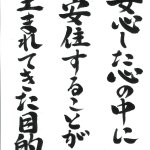 安心した心の中に
安住することが
生まれてきた目的